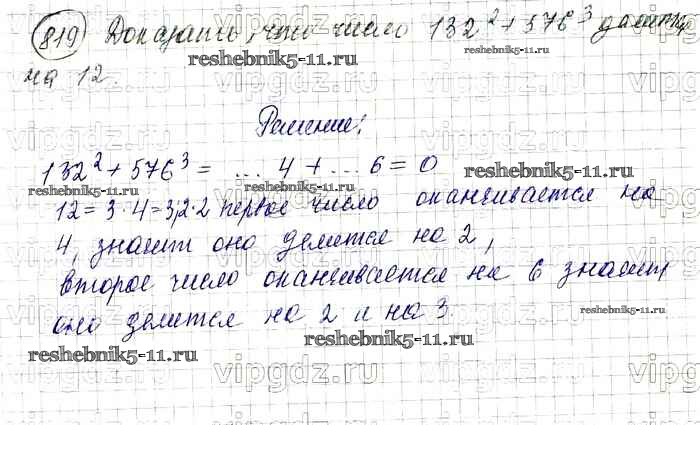 819 Доказать, что число 132² + 576³ делится
reshebnik5-11.ru
на 12.
vipgdz.ru vipgdz.ru vipgdz.ru
Решение:
132² + 576³ = ... 4 + ... 6 = 0
reshebnik5-11.ru reshebnik5-11.ru reshebnik5-11.ru
12 = 3·4 = 3·2·2 первое число оканчивается на
4, значит оно делится на 2,
второе число оканчивается на 6 значит
reshebnik5-11.ru
оно делится на 2 и на 3.
reshebnik5-11.ru reshebnik5-11.ru
vipgdz.ru vipgdz.ru vipgdz.ru